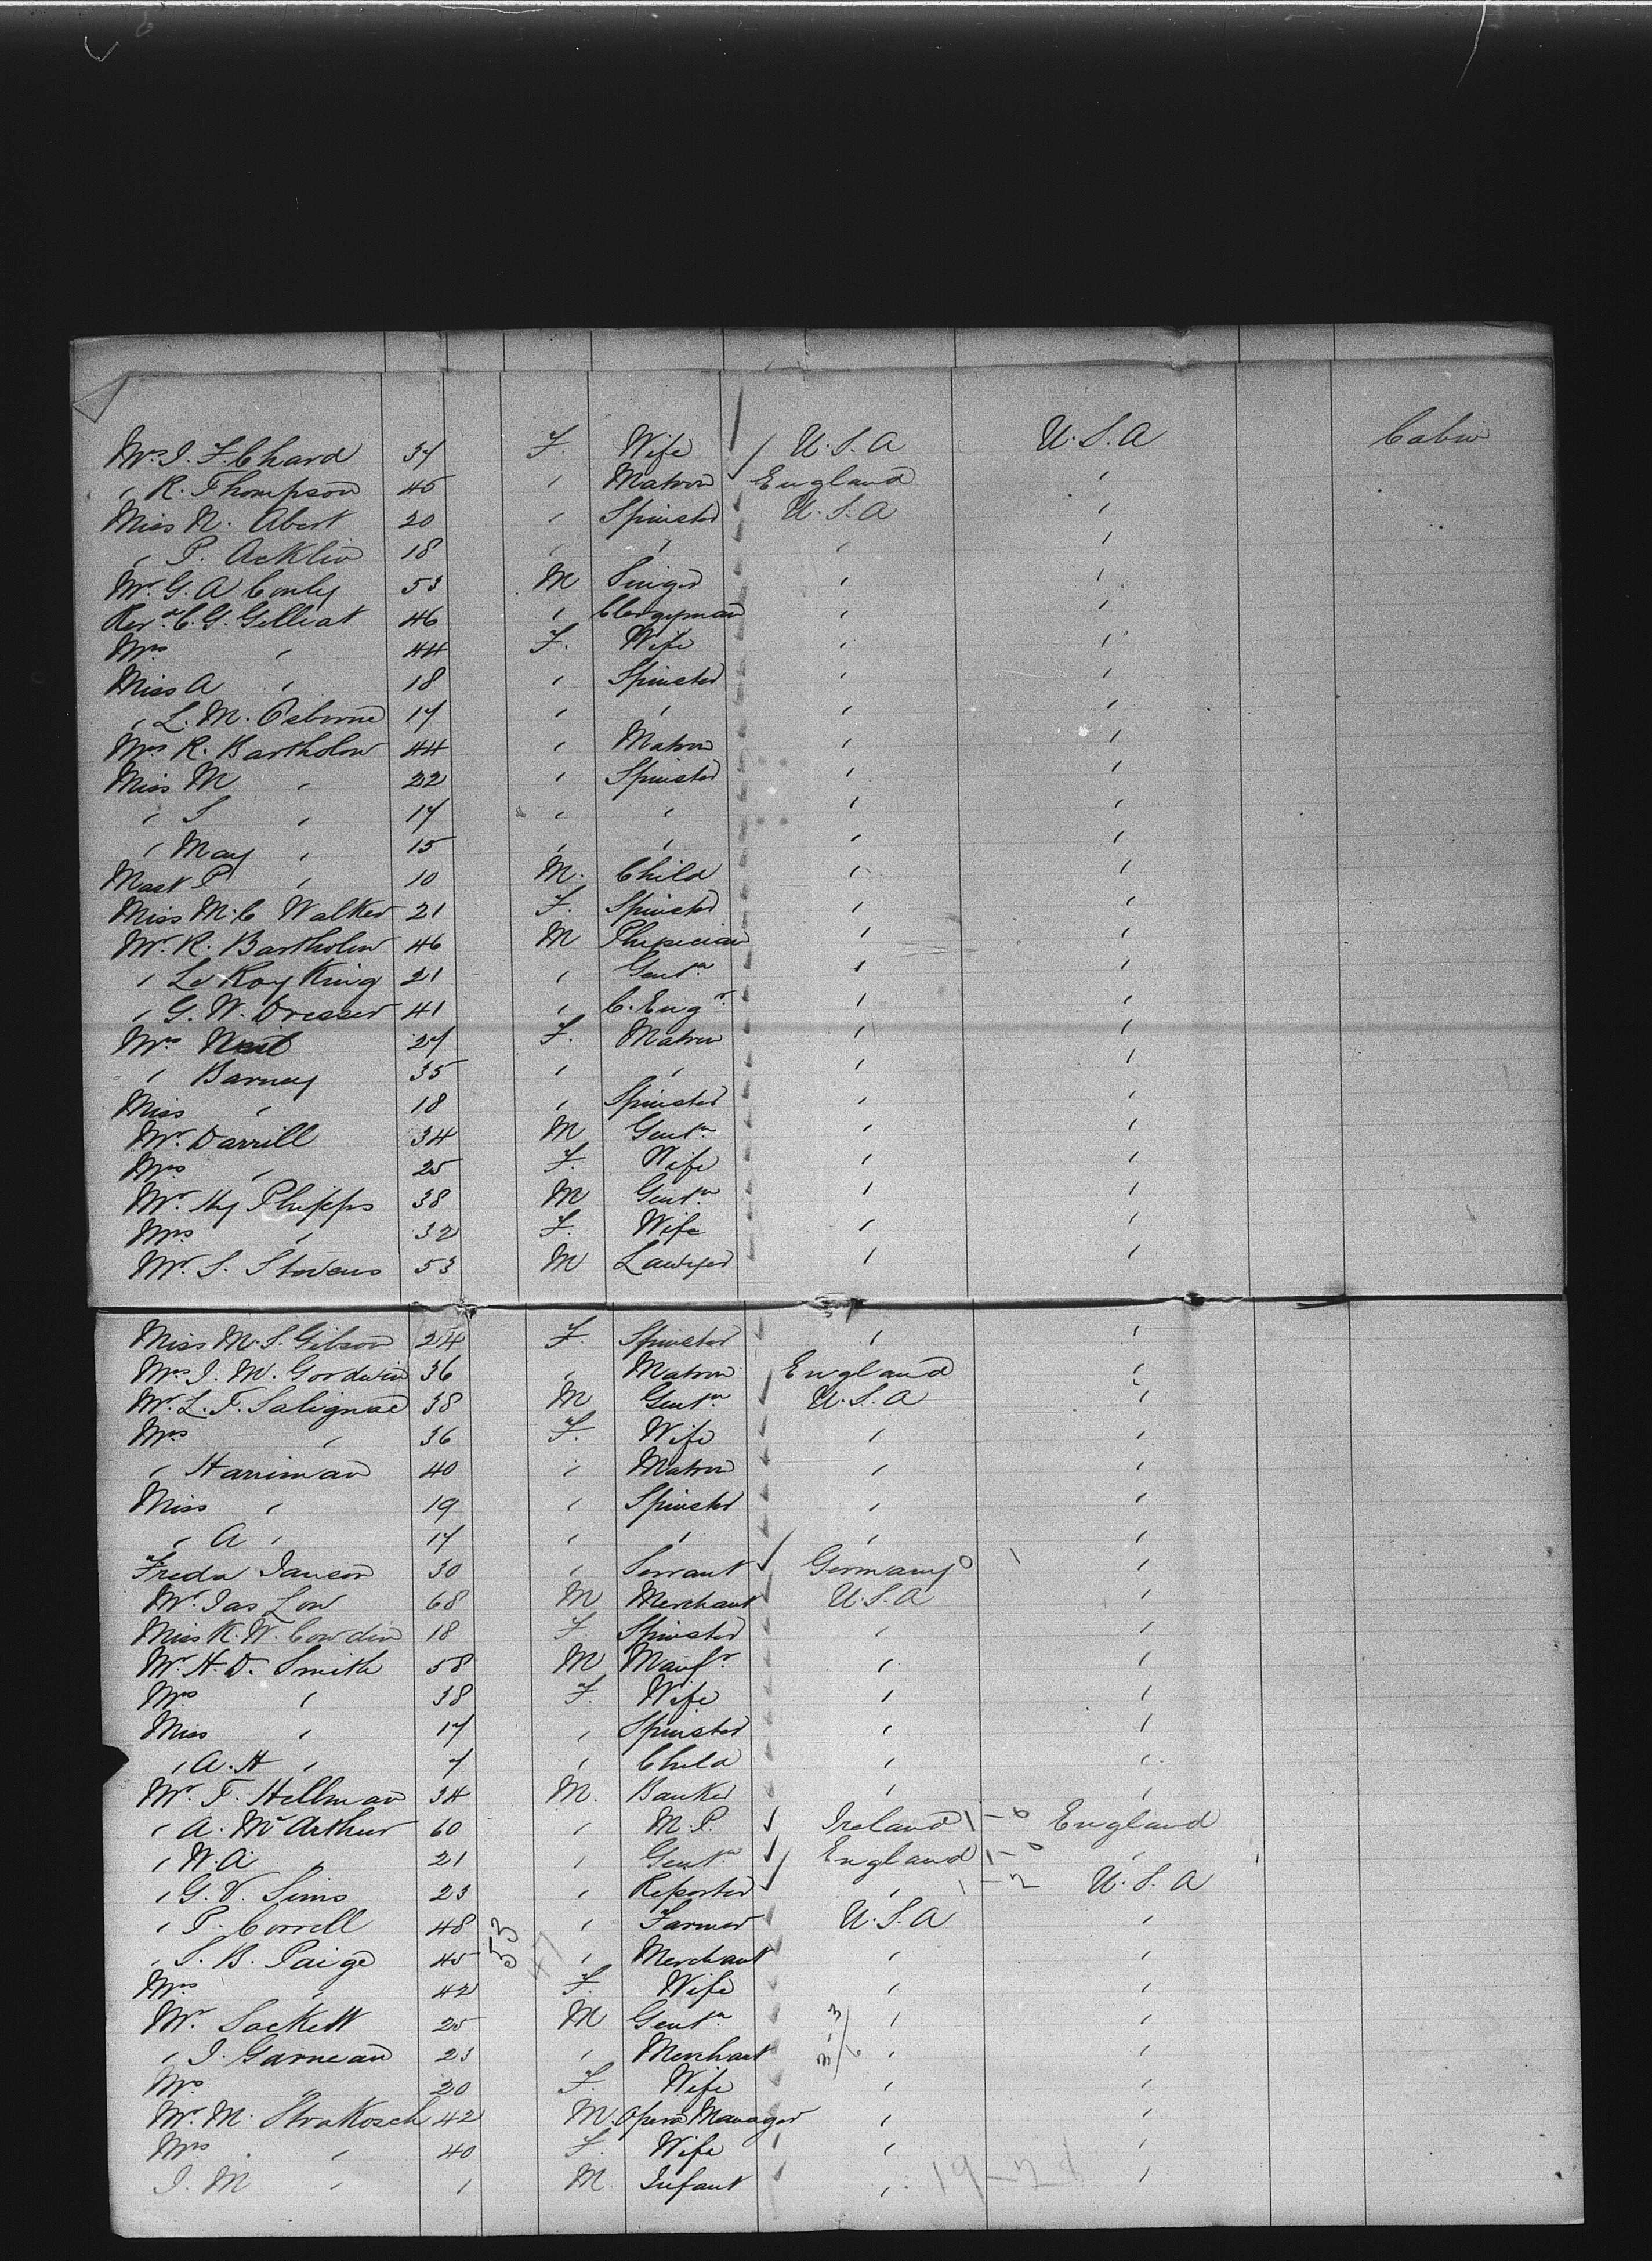 Mrs J. F. Chard 37 F. Wife U.S.A U.S.A Cabin
" R. Thompson 45 " Matron England "
Miss N. Abert 20 " Spinster U.S.A "
" P. Acklin 18 " " " "
Mr G. A Conly 53 M Singer " "
Revd C. G. Gilliat 46 " Clergyman " "
Mrs " 44 F. Wife " "
Miss A " 18 " Spinster " "
" L. M. Osborne 17 " " " "
Mrs R. Bartholow 44 " Matron " "
Miss M " 22 " Spinster " "
" S " 17 " " " "
" May " 15 " " " "
Mast P " 10 M. Child " "
Miss M. C Walker 21 F. Spinster " "
Mr R. Bartholow 46 M Physician " "
" Le Roy King 21 " Gentn " "
" G. W. Dresser 41 " C. Engr " "
Mrs Neil 27 F. Matron " "
" Barney 35 " " " "
Miss " 18 " Spinster " "
Mr Darrill 34 M Gentn " "
Mrs " 25 F. Wife " "
Mr Hy Phipps 38 M Gentn " "
Mrs " 32 F. Wife " "
Mr S. Stevens 53 M Lawyer " "
Miss M. S. Gibson 24 F. Spinster " "
Mrs J. M. Gordwin 36 " Matron England "
Mr L. T. Salignac 38 M Gentn U.S.A "
Mrs " 36 F. Wife " "
" Harriman 40 " Matron " "
Miss " 19 " Spinster " "
" A " 17 " " " "
Freda Janson 30 " Servant Germany "
Mr Jas Low 68 M Merchant U.S.A "
Miss K. W. Cowdin 18 F. Spinster " "
Mr H. D. Smith 58 M Manfr " "
Mrs " 38 F. Wife " "
Miss " 17 " Spinster " "
" A. H " 7 " Child " "
Mr T. Hellman 34 M. Banker " "
" A. McArthur 60 " M.P. Ireland 1-0 England
" W. A " 21 " Gentn England 1-0 "
" G. V. Sims 23 " Reporter " 1-2 U.S.A
" P. Correll 48 " Farmer U.S.A "
" S. B. Paige 45 53 47 " Merchant " "
Mrs " 42 F. Wife " "
Mr Sackett 25 M Gentn " "
" J. Garneau 23 " Merchant " "
Mrs " 20 F. Wife " "
Mr M. Strakosch 42 M. Opera Manager " "
Mrs " 40 F. Wife " "
J. M " 1 M Infant " 19-28 "